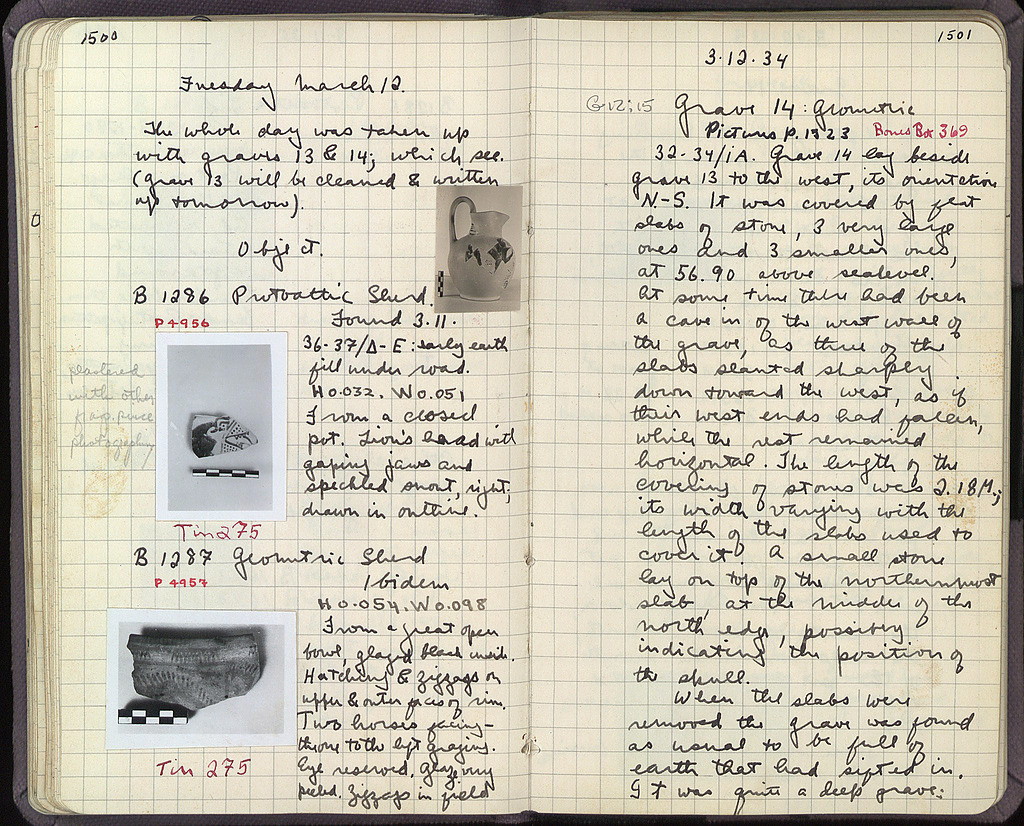 1500
Tuesday March 12.
The whole day was taken up
with graves 13 & 14; which see.
(Grave 13 will be cleaned & written
up tomorrow).
Object.
B 1286 Protoattic Sherd.
P 4956
Found 3.11.
36-37/Δ-E: early earth
fill under road.
H 0.032. W 0.051
From a closed
pot. Lion's head with
gaping jaws and
speckled snout, right,
drawn in outline.
plastered
with other
piece
photography
Tin 275
B 1287 Geometric Sherd
P 4957
Ibidem
H 0.054. W 0.098
From a great open
bowl, glazed black inside.
Hatching & zigzags on
upper & outer faces of rim.
Two horses facing -
the one to the left grazing.
Eye reserved. Glaze very
peeled. Zigzags in field
Tin 275
1501
3.12.34
G12:15 Grave 14: Geometric
Pictures p. 1323 Bones Box 369
32-34/1A. Grave 14 lay beside
grave 13 to the west, its orientation
N-S. It was covered by flat
slabs of stone, 3 very large
ones and 3 smaller ones,
at 56.90 above sealevel.
At some time there had been
a cave in of the west wall of
the grave, as three of the
slabs slanted sharply
down toward the west, as if
their west ends had fallen,
while the rest remained
horizontal. The length of the
covering of stones was 2.18 M.;
its width varying with the
length of the slabs used to
cover it. A small stone
lay on top of the northernmost
slab, at the middle of the
north edge, possibly
indicating the position of
the skull.
When the slabs were
removed the grave was found
as usual to be full of
earth that had sifted in.
It was quite a deep grave: